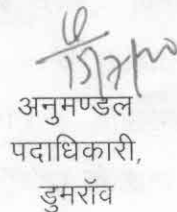 अनुमण्डल
पदाधिकारी,
डुमरॉव